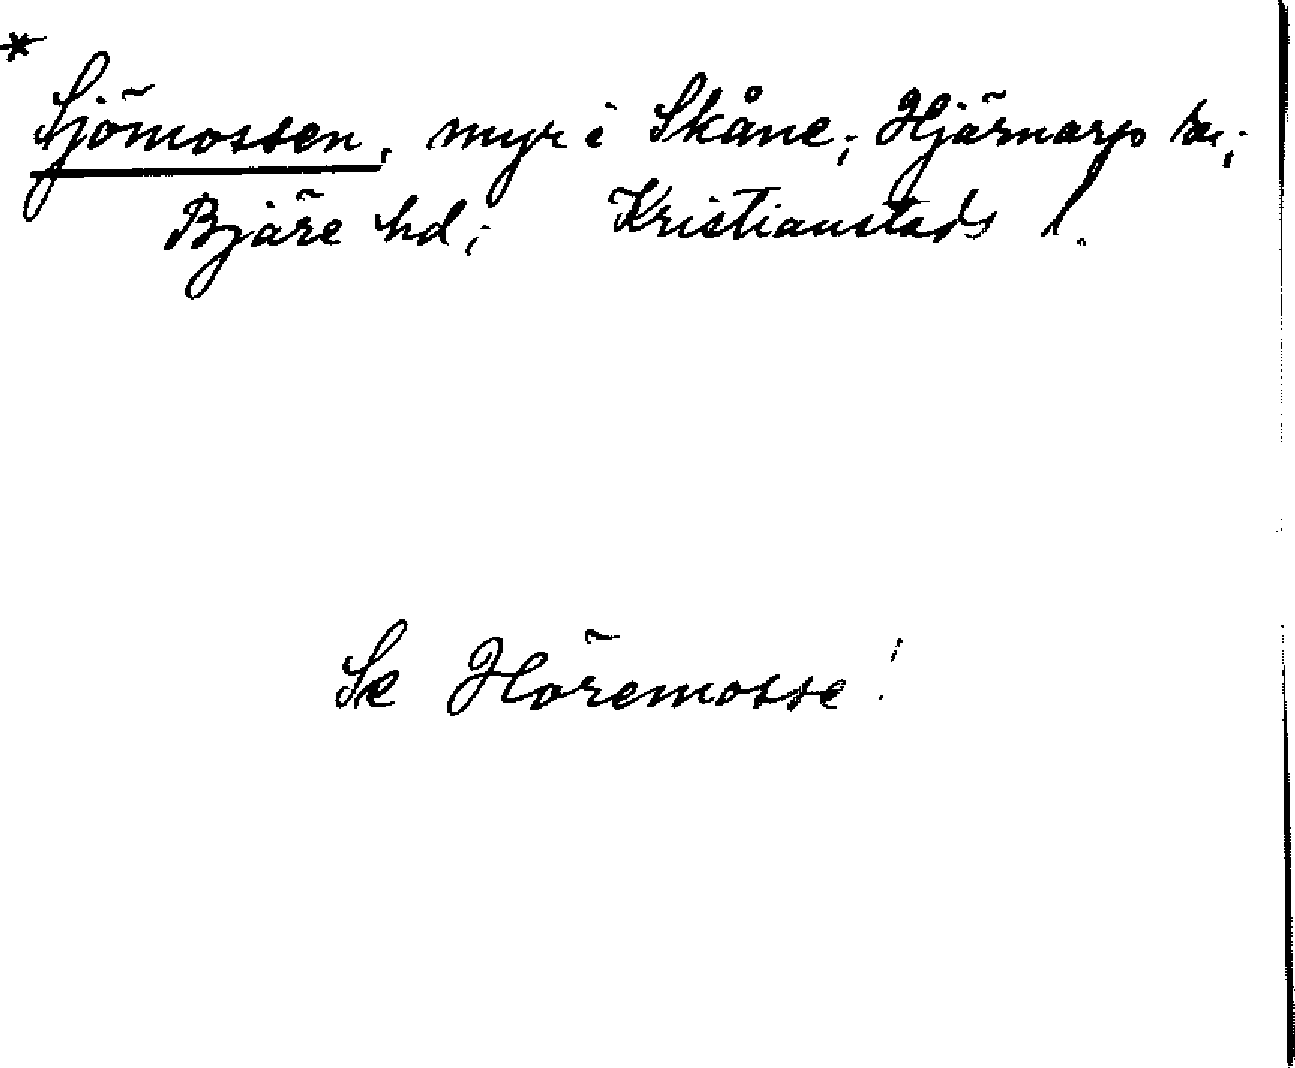 * Sjömossen, myr i Skåne; Hjärnarps sn;
Bjäre hd; Kristianstads l.
Se Höremosse!